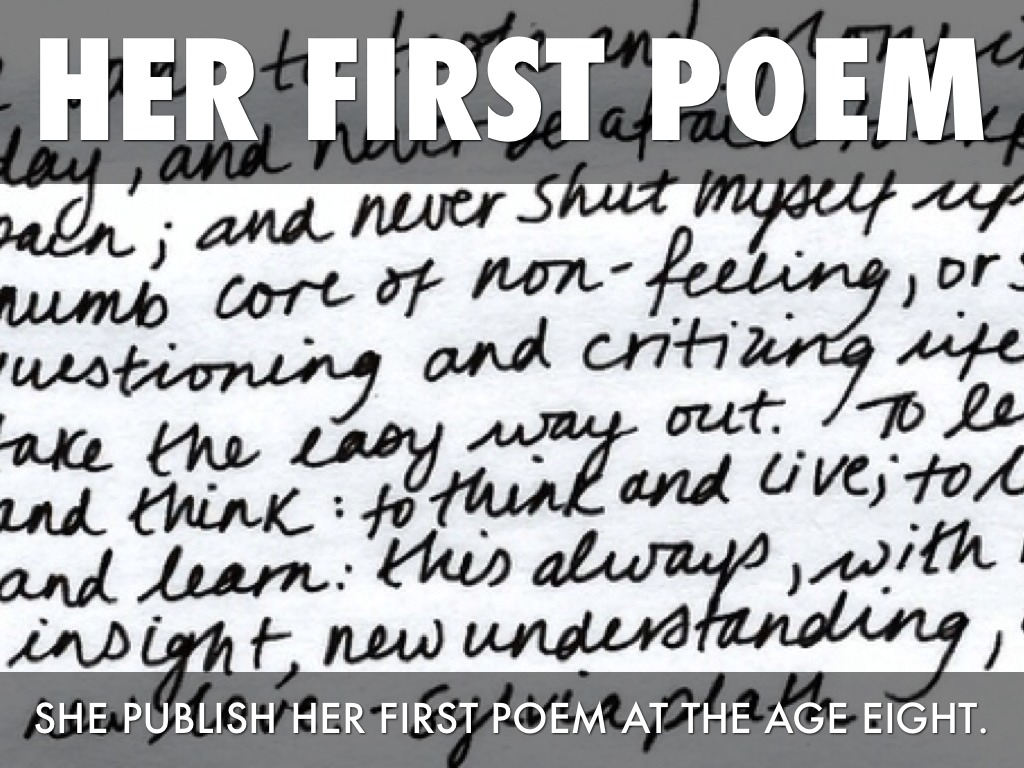 HER FIRST POEM
to taste and glory in
day, and never be afraid to
pain; and never shut myself up
numb core of non-feeling, or
questioning and critizing life
take the easy way out. To le
and think: to think and live; to l
and learn: this always, with
insight, new understanding,
sylvia plath
SHE PUBLISH HER FIRST POEM AT THE AGE EIGHT.